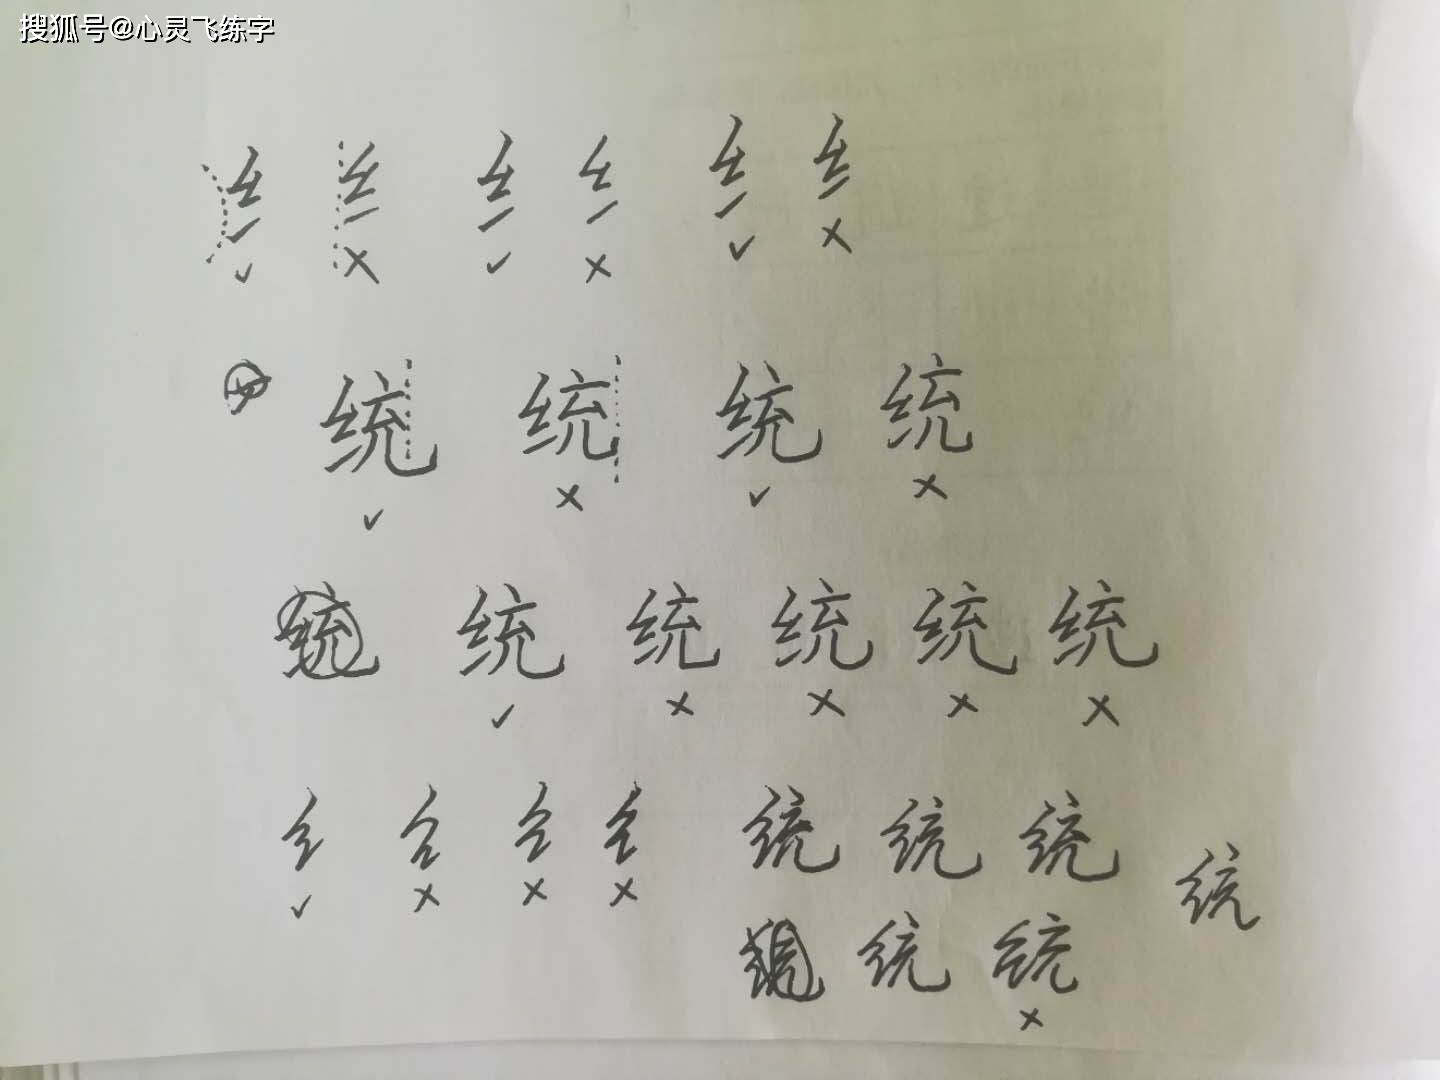 搜狐号@心灵飞练字
纟 纟 纟 纟 纟 纟
✓ × ✓ × ✓ ×
统 统 统 统
✓ × ✓ ×
统 统 统 统 统 统
✓ × × × ×
纟 纟 纟 纟 统 统 统 统
✓ × × ×
统 统
×